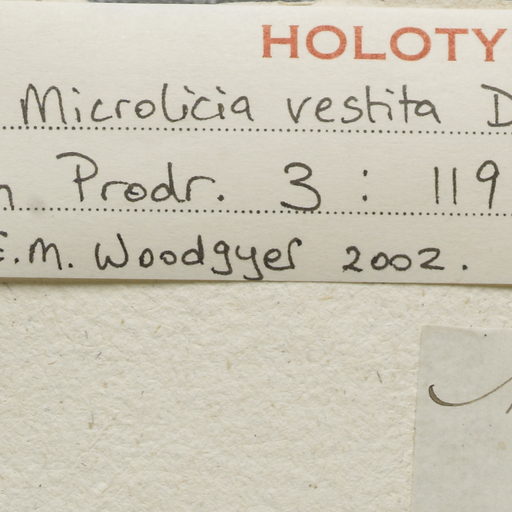 HOLOTY
Microlicia vestita D
n Prodr. 3 : 119
E.M. Woodgyer 2002.